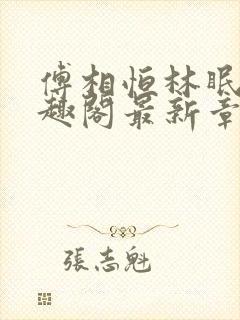 傅相恒林眠
趣阁最新章
張志魁